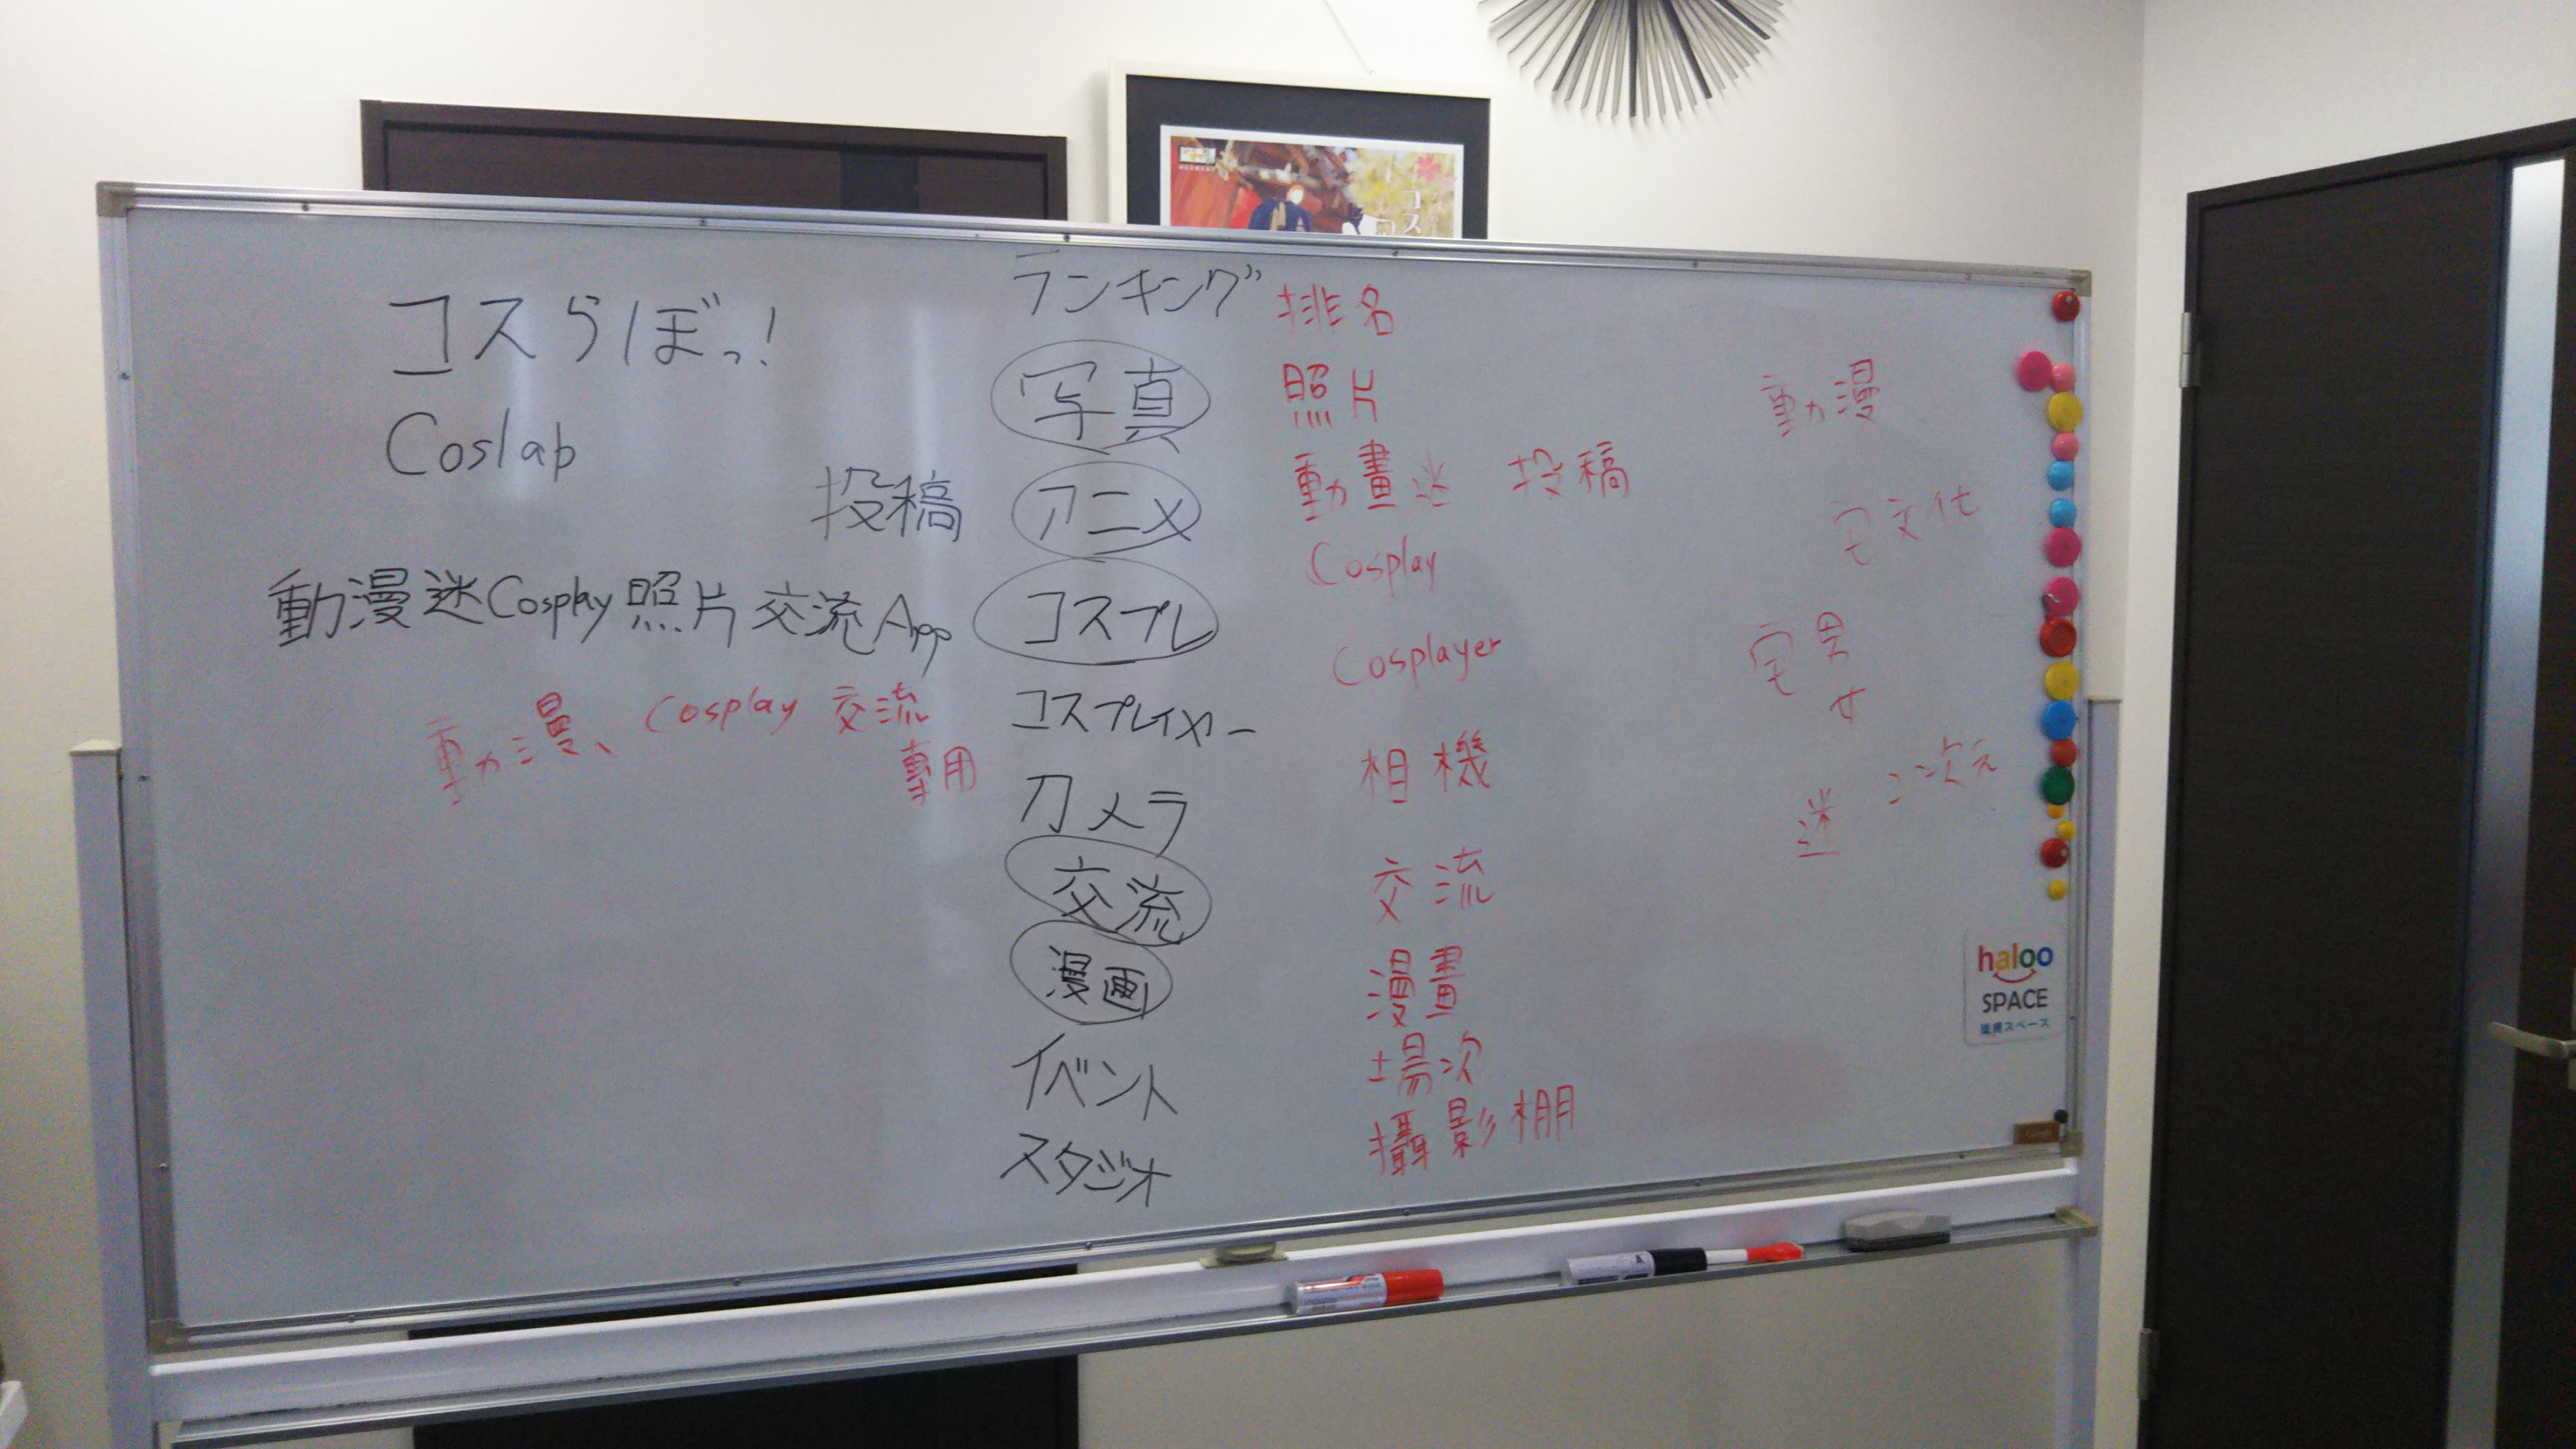 コスらぼっ!
Coslab
投稿
動漫迷Cosplay照片交流App
動漫、Cosplay交流
專用
ランキング
写真
アニメ
コスプレ
コスプレイヤー
カメラ
交流
漫画
イベント
スタジオ
排名
照片
動畫迷 投稿
Cosplay
Cosplayer
相機
交流
漫畫
場次
攝影棚
動漫
宅文化
宅男
女
二次元
迷
haloo
SPACE
コス